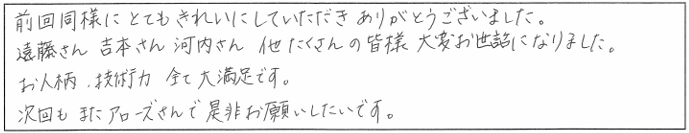 前回同様にとてもきれいにしていただきありがとうございました。
遠藤さん 吉本さん 河内さん 他たくさんの皆様 大変お世話になりました。
お人柄、技術力 全て大満足です。
次回も またアローズさんで是非お願いしたいです。